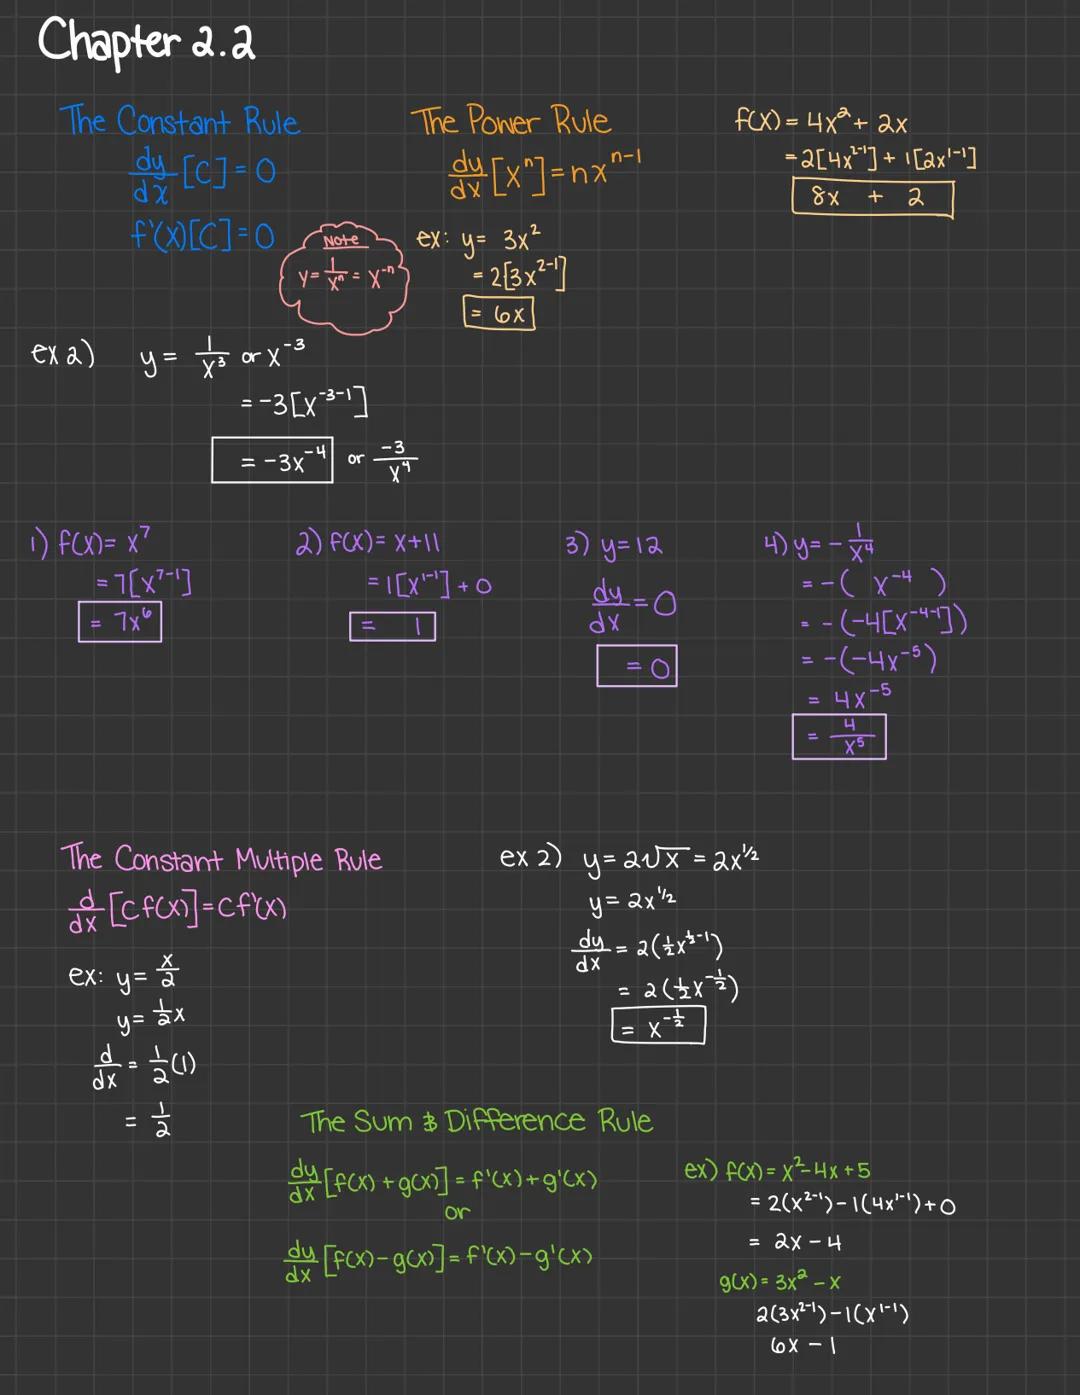 Chapter 2.2
The Constant Rule
dy/dx [C] = 0
f'(x)[C] = 0
The Power Rule
dy/dx [xⁿ] = nxⁿ⁻¹
ex: y = 3x²
= 2[3x²⁻¹]
= 6x
f(x) = 4x² + 2x
= 2[4x²⁻¹] + 1[2x¹⁻¹]
8x + 2
Note
y = 1/xⁿ = x⁻ⁿ
ex 2) y = 1/x³ or x⁻³
= -3[x⁻³⁻¹]
= -3x⁻⁴ or -3/x⁴
1) f(x) = x⁷
= 7[x⁷⁻¹]
= 7x⁶
2) f(x) = x + 11
= 1[x¹⁻¹] + 0
= 1
3) y = 12
dy/dx = 0
= 0
4) y = - 1/x⁴
= -( x⁻⁴ )
= -(-4[x⁻⁴⁻¹])
= -(-4x⁻⁵)
= 4x⁻⁵
= 4/x⁵
The Constant Multiple Rule
d/dx [Cf(x)] = Cf'(x)
ex: y = x/2
y = 1/2 x
d/dx = 1/2 (1)
= 1/2
ex 2) y = 2√x = 2x^1/2
y = 2x^1/2
dy/dx = 2(1/2 x^1/2-1)
= 2(1/2 x^-1/2)
= x^-1/2
The Sum & Difference Rule
dy/dx [f(x) + g(x)] = f'(x) + g'(x)
or
dy/dx [f(x) - g(x)] = f'(x) - g'(x)
ex) f(x) = x² - 4x + 5
= 2(x²⁻¹) - 1(4x¹⁻¹) + 0
= 2x - 4
g(x) = 3x² - x
2(3x²⁻¹) - 1(x¹⁻¹)
6x - 1